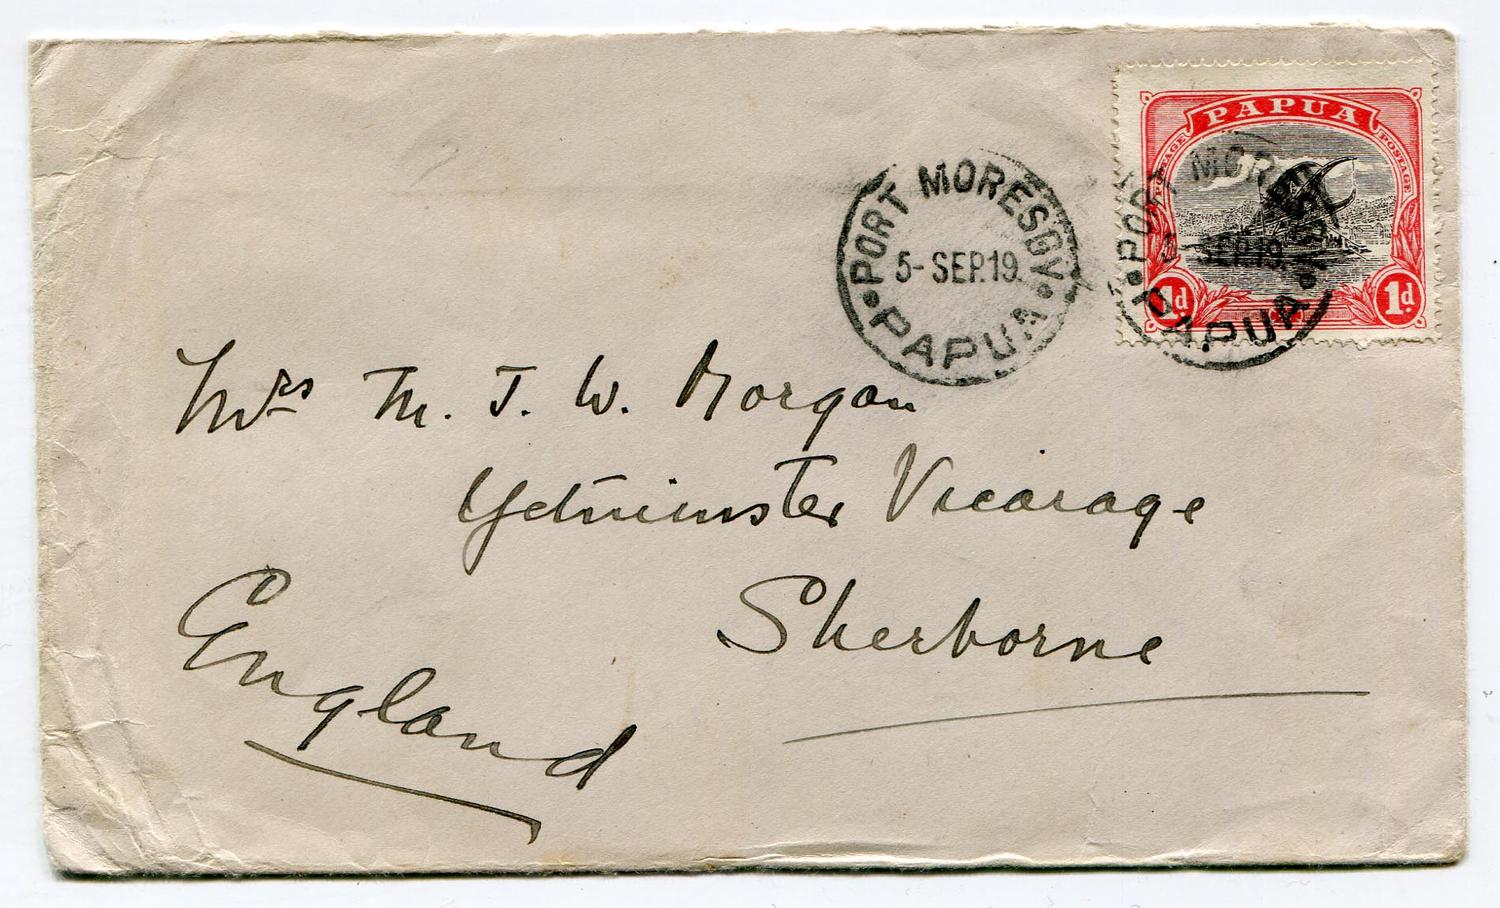 PAPUA
POSTAGE POSTAGE
1d. 1d.
PORT MORESBY
5-SEP.19.
PAPUA
PORT MORESBY
5-SEP.19.
PAPUA
Mrs M. J. W. Morgan
Yetminster Vicarage
Sherborne
England